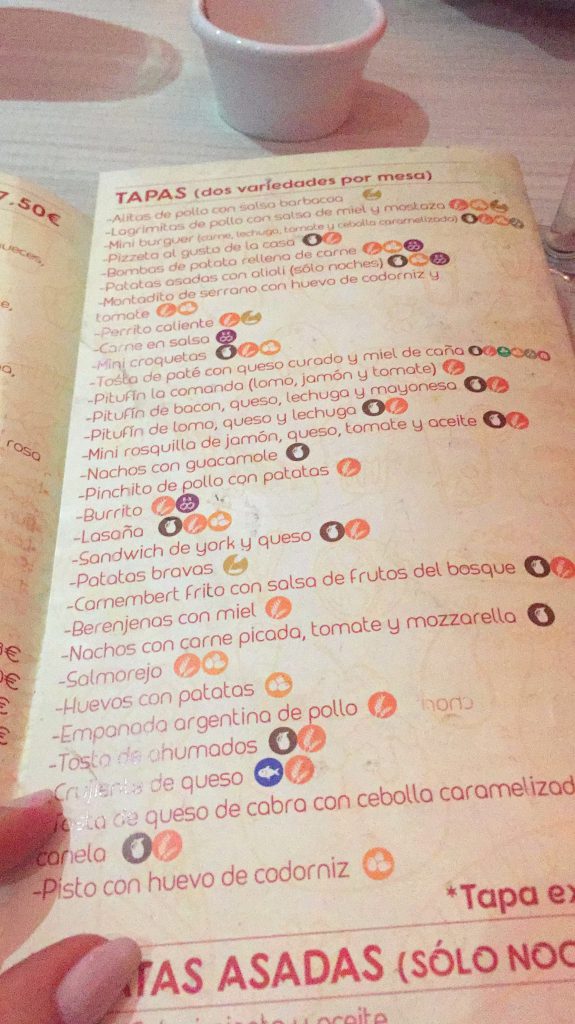 7.50€
ueces,
e,
a,
rosa
€
€
€
€
TAPAS (dos variedades por mesa)
-Alitas de pollo con salsa barbacoa
-Lagrimitas de pollo con salsa de miel y mostaza
-Mini burguer (carne, lechuga, tomate y cebolla caramelizada)
-Pizzeta al gusto de la casa
-Bombas de patata rellena de carne
-Patatas asadas con alioli (sólo noches)
-Montadito de serrano con huevo de codorniz y
tomate
-Perrito caliente
-Carne en salsa
-Mini croquetas
-Tosta de paté con queso curado y miel de caña
-Pitufín la comanda (lomo, jamón y tomate)
-Pitufín de bacon, queso, lechuga y mayonesa
-Pitufín de lomo, queso y lechuga
-Mini rosquilla de jamón, queso, tomate y aceite
-Nachos con guacamole
-Pinchito de pollo con patatas
-Burrito
-Lasaña
-Sandwich de york y queso
-Patatas bravas
-Camembert frito con salsa de frutos del bosque
-Berenjenas con miel
-Nachos con carne picada, tomate y mozzarella
-Salmorejo
-Huevos con patatas
-Empanada argentina de pollo
-Tosta de ahumados
Crujiente de queso
Tosta de queso de cabra con cebolla caramelizad
canela
-Pisto con huevo de codorniz
*Tapa ex
TAS ASADAS (SÓLO NOC
y aceite